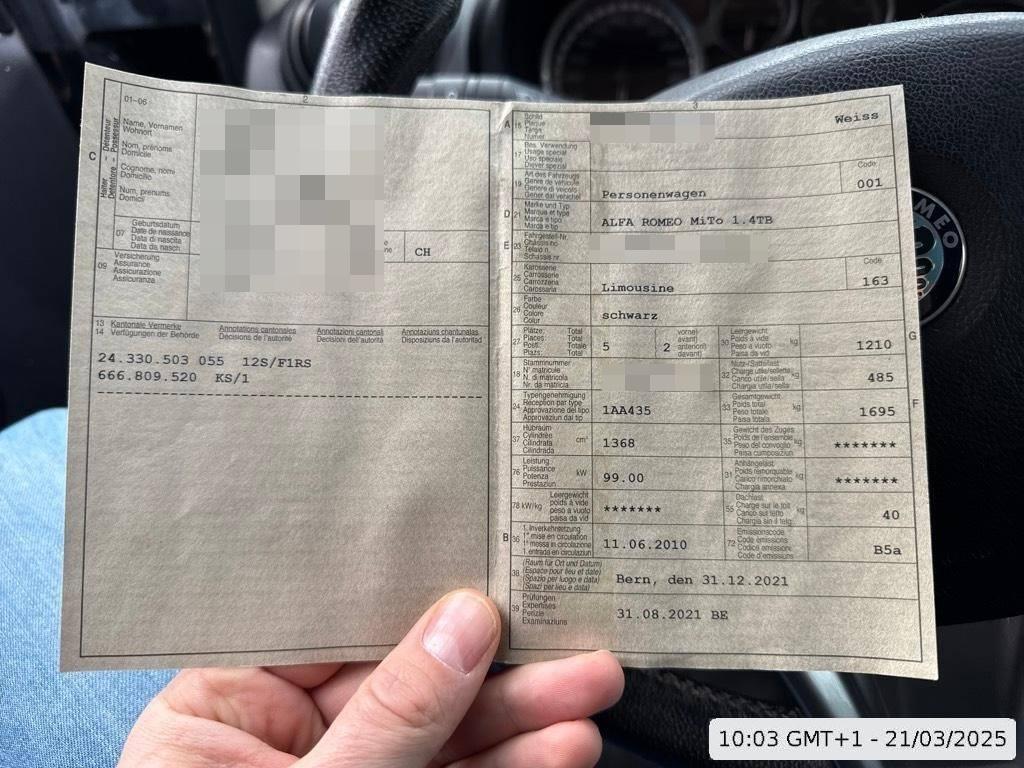 2
01-06
Halter
Détenteur
Detentore
Possessur
C
Name, Vornamen
Wohnort
Nom, prénoms
Domicile
Cognome, nomi
Domicilio
Num, prenums
Domicil
07
Geburtsdatum
Date de naissance
Data di nascita
Data da nasch.
CH
09
Versicherung
Assurance
Assicurazione
Assicuranza
13 Kantonale Vermerke
14 Verfügungen der Behörde
Annotations cantonales
Décisions de l'autorité
Annotazioni cantonali
Decisioni dell'autorità
Annotaziuns chantunalas
Disposiziuns da l'autoritad
24.330.503 055 12S/F1RS
666.809.520 KS/1
3
A 15 Schild
Plaque
Targa
Numer
Weiss
17 Bes. Verwendung
Usage spécial
Uso speciale
Diever spezial
19 Art des Fahrzeugs
Genre de véhicule
Genere di veicolo
Gener dal vehichel
Personenwagen
Code
001
D 21 Marke und Typ
Marque et type
Marca e tipo
Marca e tip
ALFA ROMEO MiTo 1.4TB
E 23 Fahrgestell-Nr.
Châssis no
Telaio n.
Schassis nr.
25 Karosserie
Carrosserie
Carrozzeria
Carossaria
Limousine
Code
163
26 Farbe
Couleur
Colore
Colur
schwarz
27 Plätze: Total
Places: Total
Posti: Totale
Plazs: Total
5
2
(vorne)
avant)
anteriori)
davant)
30 Leergewicht
Poids à vide
Peso a vuoto
Paisa da vid
kg
1210
G
18 Stammnummer
N° matricule
N. di matricola
Nr. da matricla
32 Nutz-/Sattellast
Charge utile/sellette
Carico utile/sella
Chargia utila/sella
kg
485
24 Typengenehmigung
Réception par type
Approvazione del tipo
Approvaziun dal tip
1AA435
33 Gesamtgewicht
Poids total
Peso totale
Paisa totala
kg
1695
F
37 Hubraum
Cylindrée
Cilindrata
Cilindrada
cm³
1368
35 Gewicht des Zuges
Poids de l'ensemble
Peso del convoglio
Paisa cumposiziun
kg
*******
76 Leistung
Puissance
Potenza
Prestaziun
kW
99.00
31 Anhängelast
Poids remorquable
Carico rimorchiato
Chargia annexa
kg
*******
78 kW/kg
Leergewicht
poids à vide
peso a vuoto
paisa da vid
*******
55 Dachlast
Charge sur le toit
Carico sul tetto
Chargia sin il tetg
kg
40
B 36 1. Inverkehrsetzung
1re mise en circulation
1a messa in circolazione
1. entrada en circulaziun
11.06.2010
72 Emissionscode
Code émissions
Codice emissioni
Code d'emissiuns
B5a
38 (Raum für Ort und Datum)
(Espace pour lieu et date)
(Spazio per luogo e data)
(Spazi per lieu e data)
Bern, den 31.12.2021
39 Prüfungen
Expertises
Perizie
Examinaziuns
31.08.2021 BE
10:03 GMT+1 - 21/03/2025